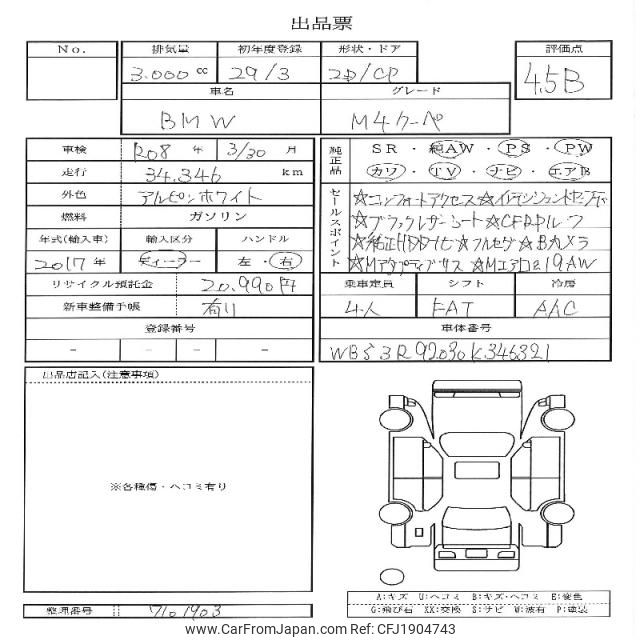 出品票
No. 排気量 初年度登録 形状・ドア 評価点
3.000 cc 29/3 2D/CP 4.5B
車名 グレード
BMW M4クーペ
車検 R08 年 3/30 月
走行 34.346 km
外色 アルピンホワイト
燃料 ガソリン
年式(輸入車) 輸入区分 ハンドル
2017年 ディーラー 左・右
リサイクル預託金 20.990円
新車整備手帳 有り
登録番号
- - - -
純正品 SR・純AW・PS・PW
カワ・TV・ナビ・エアB
セールスポイント
☆コンフォートアクセス☆
☆ブラックレザーシート☆CFRPルーフ
☆純正HDDナビ☆フルセグ☆Bカメラ
☆Mアダプティブサス☆Mエアロ☆19AW
乗車定員 シフト 冷房
4人 FAT AAC
車体番号
WBS3R92030K346321
出品店記入(注意事項)
※各種傷・ヘコミ有り
A:キズ U:ヘコミ B:キズ・ヘコミ E:変色
G:飛び石 XX:交換 S:サビ W:波有 P:塗装
整理番号 7101903
www.CarFromJapan.com | Ref No: CFJ1904743